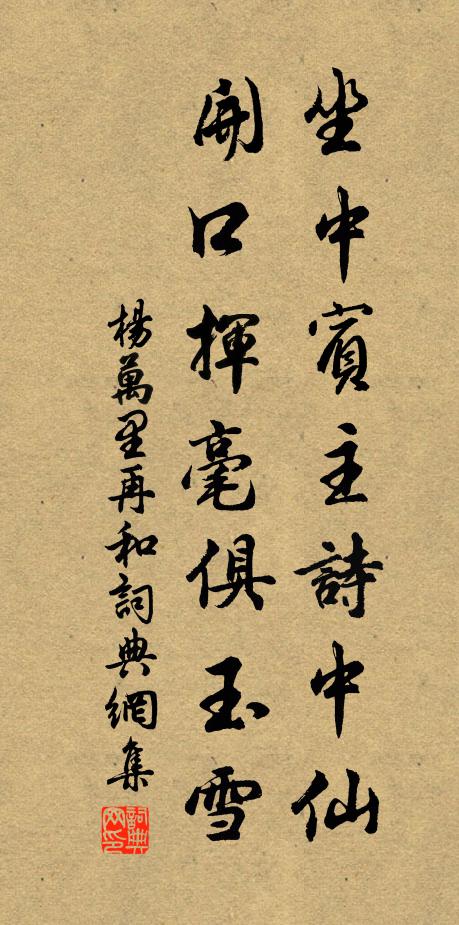 坐中賓主詩中仙
開口揮毫俱玉雪
楊萬里再和詞典網集
詞典網印